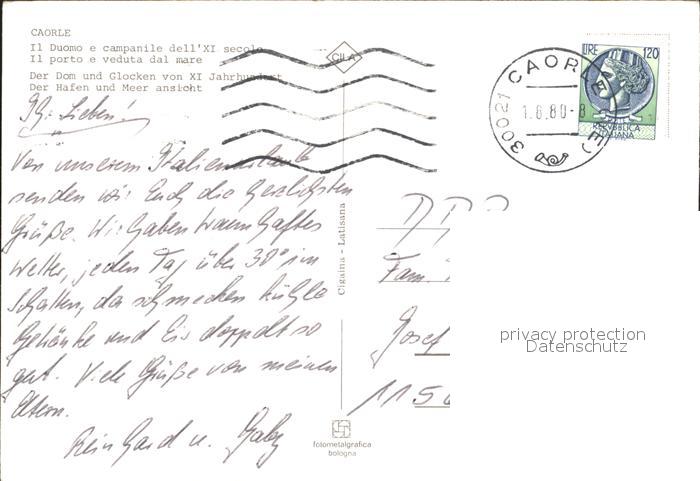 CAORLE
Il Duomo e campanile dell'XI secolo
Il porto e veduta dal mare
Der Dom und Glocken von XI Jahrhundert
Der Hafen und Meer ansicht
GILA
30021 CAORLE (VE)
1.6.80-8
LIRE 120
REPVBBLICA
ITALIANA
Ihr Lieben!
Von unserem Italienurlaub
senden wir Euch die herzlichsten
Grüße. Wir haben traumhaftes
Wetter, jeden Tag über 30° im
Schatten, da schmecken kühle
Getränke und Eis doppelt so
gut. Viele Grüße von meinen
Eltern.
Reinhard u. Gaby
Cigaina - Latisana
Fam.
Josef
115
privacy protection
Datenschutz
fotometalgrafica
bologna